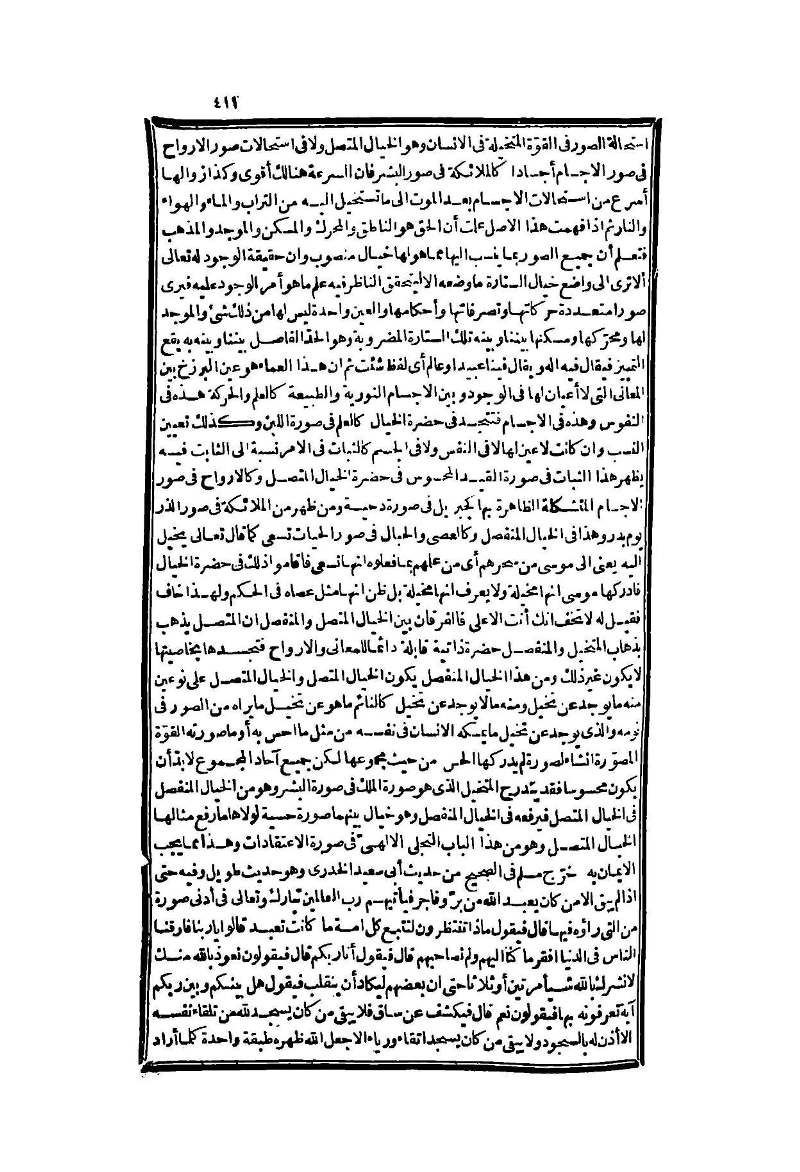 ٤١١
استحالة الصور فى القوة المتخيلة فى الانسان وهو الخيال المتصل ولا فى استحالات صور الارواح
فى صور الاجسام أجسادا كالملائكة فى صور البشر فان السرعة هنالك أقوى وكذا زوالها
أسرع من استحالات الاجسام بعد الموت الى ما تستحيل اليه من التراب والماء والهواء
والنار ثم اذا فهمت هذا الاصل علمت أن الحق هو الناطق والمحرك والمسكن والموجد والمذهب
فتعلم أن جميع الصور بما ينسب اليها مما هو لها خيال منصوب وان حقيقة الوجود له تعالى
ألا ترى الى واضع خيال الستارة ما وضعه الا ليتحقق الناظر فيه علم ما هو أمر الوجود عليه فيرى
صورا متعددة حركاتها وتصرفاتها وأحكامها والعين واحدة ليس لها من ذلك شئ والموجد
لها ومحركها ومسكنها بيننا وبينه تلك الستارة المضروبة وهو الحد الفاصل بيننا وبينه به يقع
التمييز فيقال فيه اله ويقال فينا عبيد او عالم أى لفظ شئت ثم ان هذا العماء هو عين البرزخ بين
المعانى التى لا أعيان لها فى الوجود وبين الاجسام النورية والطبيعة كالعلم والحركة هذه فى
النفوس وهذه فى الاجسام فتتجسد فى حضرة الخيال كالعلم فى صورة اللبن وكذلك تعيين
النسب وان كانت لا عين لها لا فى النفس ولا فى الجسم كالثبات فى الامر نسبة الى الثابت فيه
يظهر هذا الثبات فى صورة القيد المحسوس فى حضرة الخيال المتصل وكالارواح فى صور
الاجسام المتشكلة الظاهرة بها كجبريل فى صورة دحية ومن ظهر من الملائكة فى صور الذر
يوم بدر وهذا فى الخيال المنفصل وكالعصى والحبال فى صور الحيات تسعى كما قال تعالى يخيل
اليه يعنى الى موسى من سحرهم أى من علمهم بما فعلوه انها تسعى فاقاموا ذلك فى حضرة الخيال
فادركها موسى انها مخيلة ولا يعرف انها مخيلة بل ظن انها مثل عصاه فى الحكم ولهذا خاف
فقيل له لا تخف انك أنت الاعلى فالفرقان بين الخيال المتصل والمنفصل ان المتصل يذهب
بذهاب المتخيل والمنفصل حضرة ذاتية قابلة دائما للمعانى والارواح فتجسدها بخاصيتها
لا يكون غير ذلك ومن هذا الخيال المنفصل يكون الخيال المتصل والخيال المتصل على نوعين
منه ما يوجد عن تخيل ومنه ما لا يوجد عن تخيل كالنائم ما هو عن تخيل ما يراه من الصور فى
نومه والذى يوجد عن تخيل ما يمسكه الانسان فى نفسه من مثل ما احس به أو ما صورته القوة
المصورة انشاء لصورة لم يدركها الحس من حيث مجموعها لكن جميع آحاد المجموع لا بد أن
يكون محسوسا فقد يندرج المتخيل الذى هو صورة الملك فى صورة البشر وهو من الخيال المنفصل
فى الخيال المتصل فيرفعه فى الخيال المنفصل وهو خيال بينهما صورة حسية لولاها ما رفع مثالها
الخيال المتصل وهو من هذا الباب التجلى الالهى فى صورة الاعتقادات وهذا مما يجب
الايمان به خرج مسلم فى الصحيح من حديث أبى سعيد الخدرى وهو حديث طويل وفيه حتى
اذا لم يبق الا من كان يعبد الله من بر وفاجر فيأتيهم رب العالمين تبارك وتعالى فى أدنى صورة
من التى رأوه فيها قال فيقول ماذا تنتظرون لتتبع كل امة ما كانت تعبد قالوا يا ربنا فارقنا
الناس فى الدنيا افقر ما كنا اليهم ولم نصاحبهم قال فيقول أنا ربكم قال فيقولون نعوذ بالله منك
لا نشرك بالله شيأ مرتين أو ثلاثا حتى ان بعضهم ليكاد أن ينقلب فيقول هل بينكم وبين ربكم
آية تعرفونه بها فيقولون نعم قال فيكشف عن ساق فلا يبقى من كان يسجد لله من تلقاء نفسه
الا أذن له بالسجود ولا يبقى من كان يسجد اتقاء ورياء الا جعل الله ظهره طبقة واحدة كلما أراد